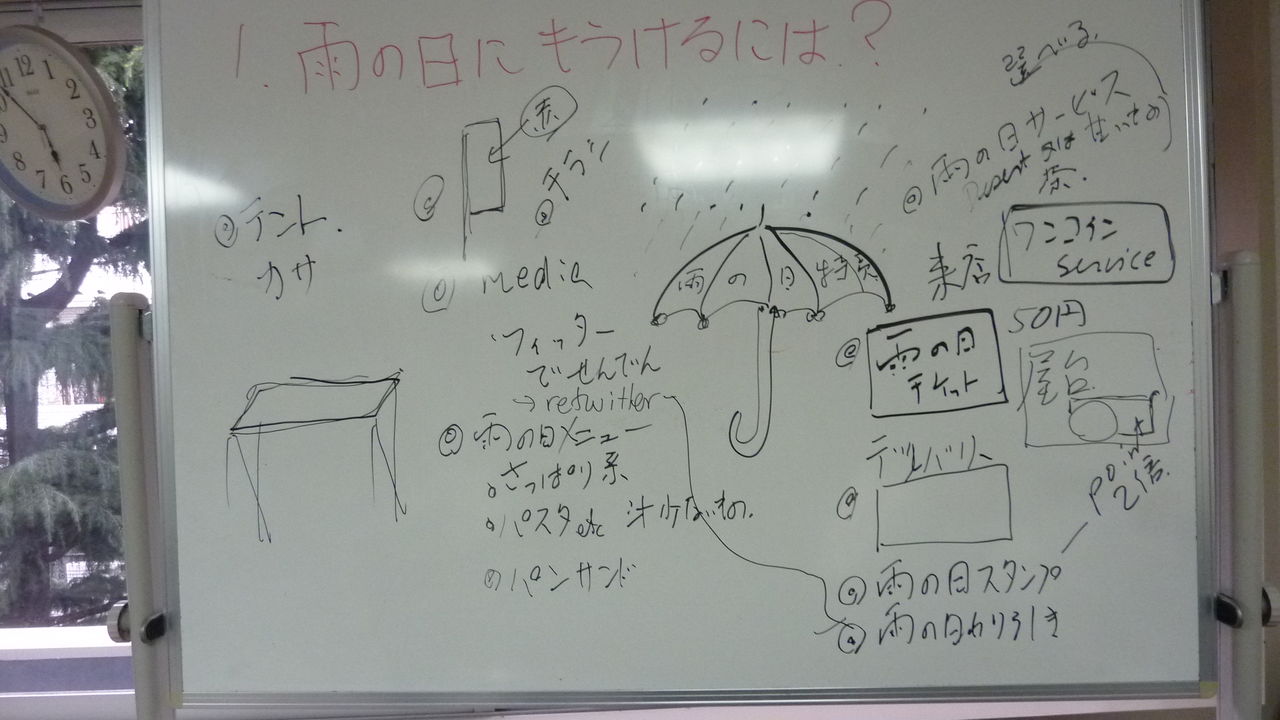 1. 雨の日にもうけるには？
選べる
雨の日サービス
Present 又は 甘いもの
茶.
赤
チラシ
テント.
カサ
media
雨の日特典
来店
ワンコイン
service
ツイッター
でせんでん
→ retwitter
雨の日
チケット
50円
屋台
雨の日メニュー
さっぱり系
パスタ etc 汁少ないもの.
パンサンド
デリバリー
point
2倍.
雨の日スタンプ
雨の日わり引き
12 1 2 3 4 5 6 7 8 9 11